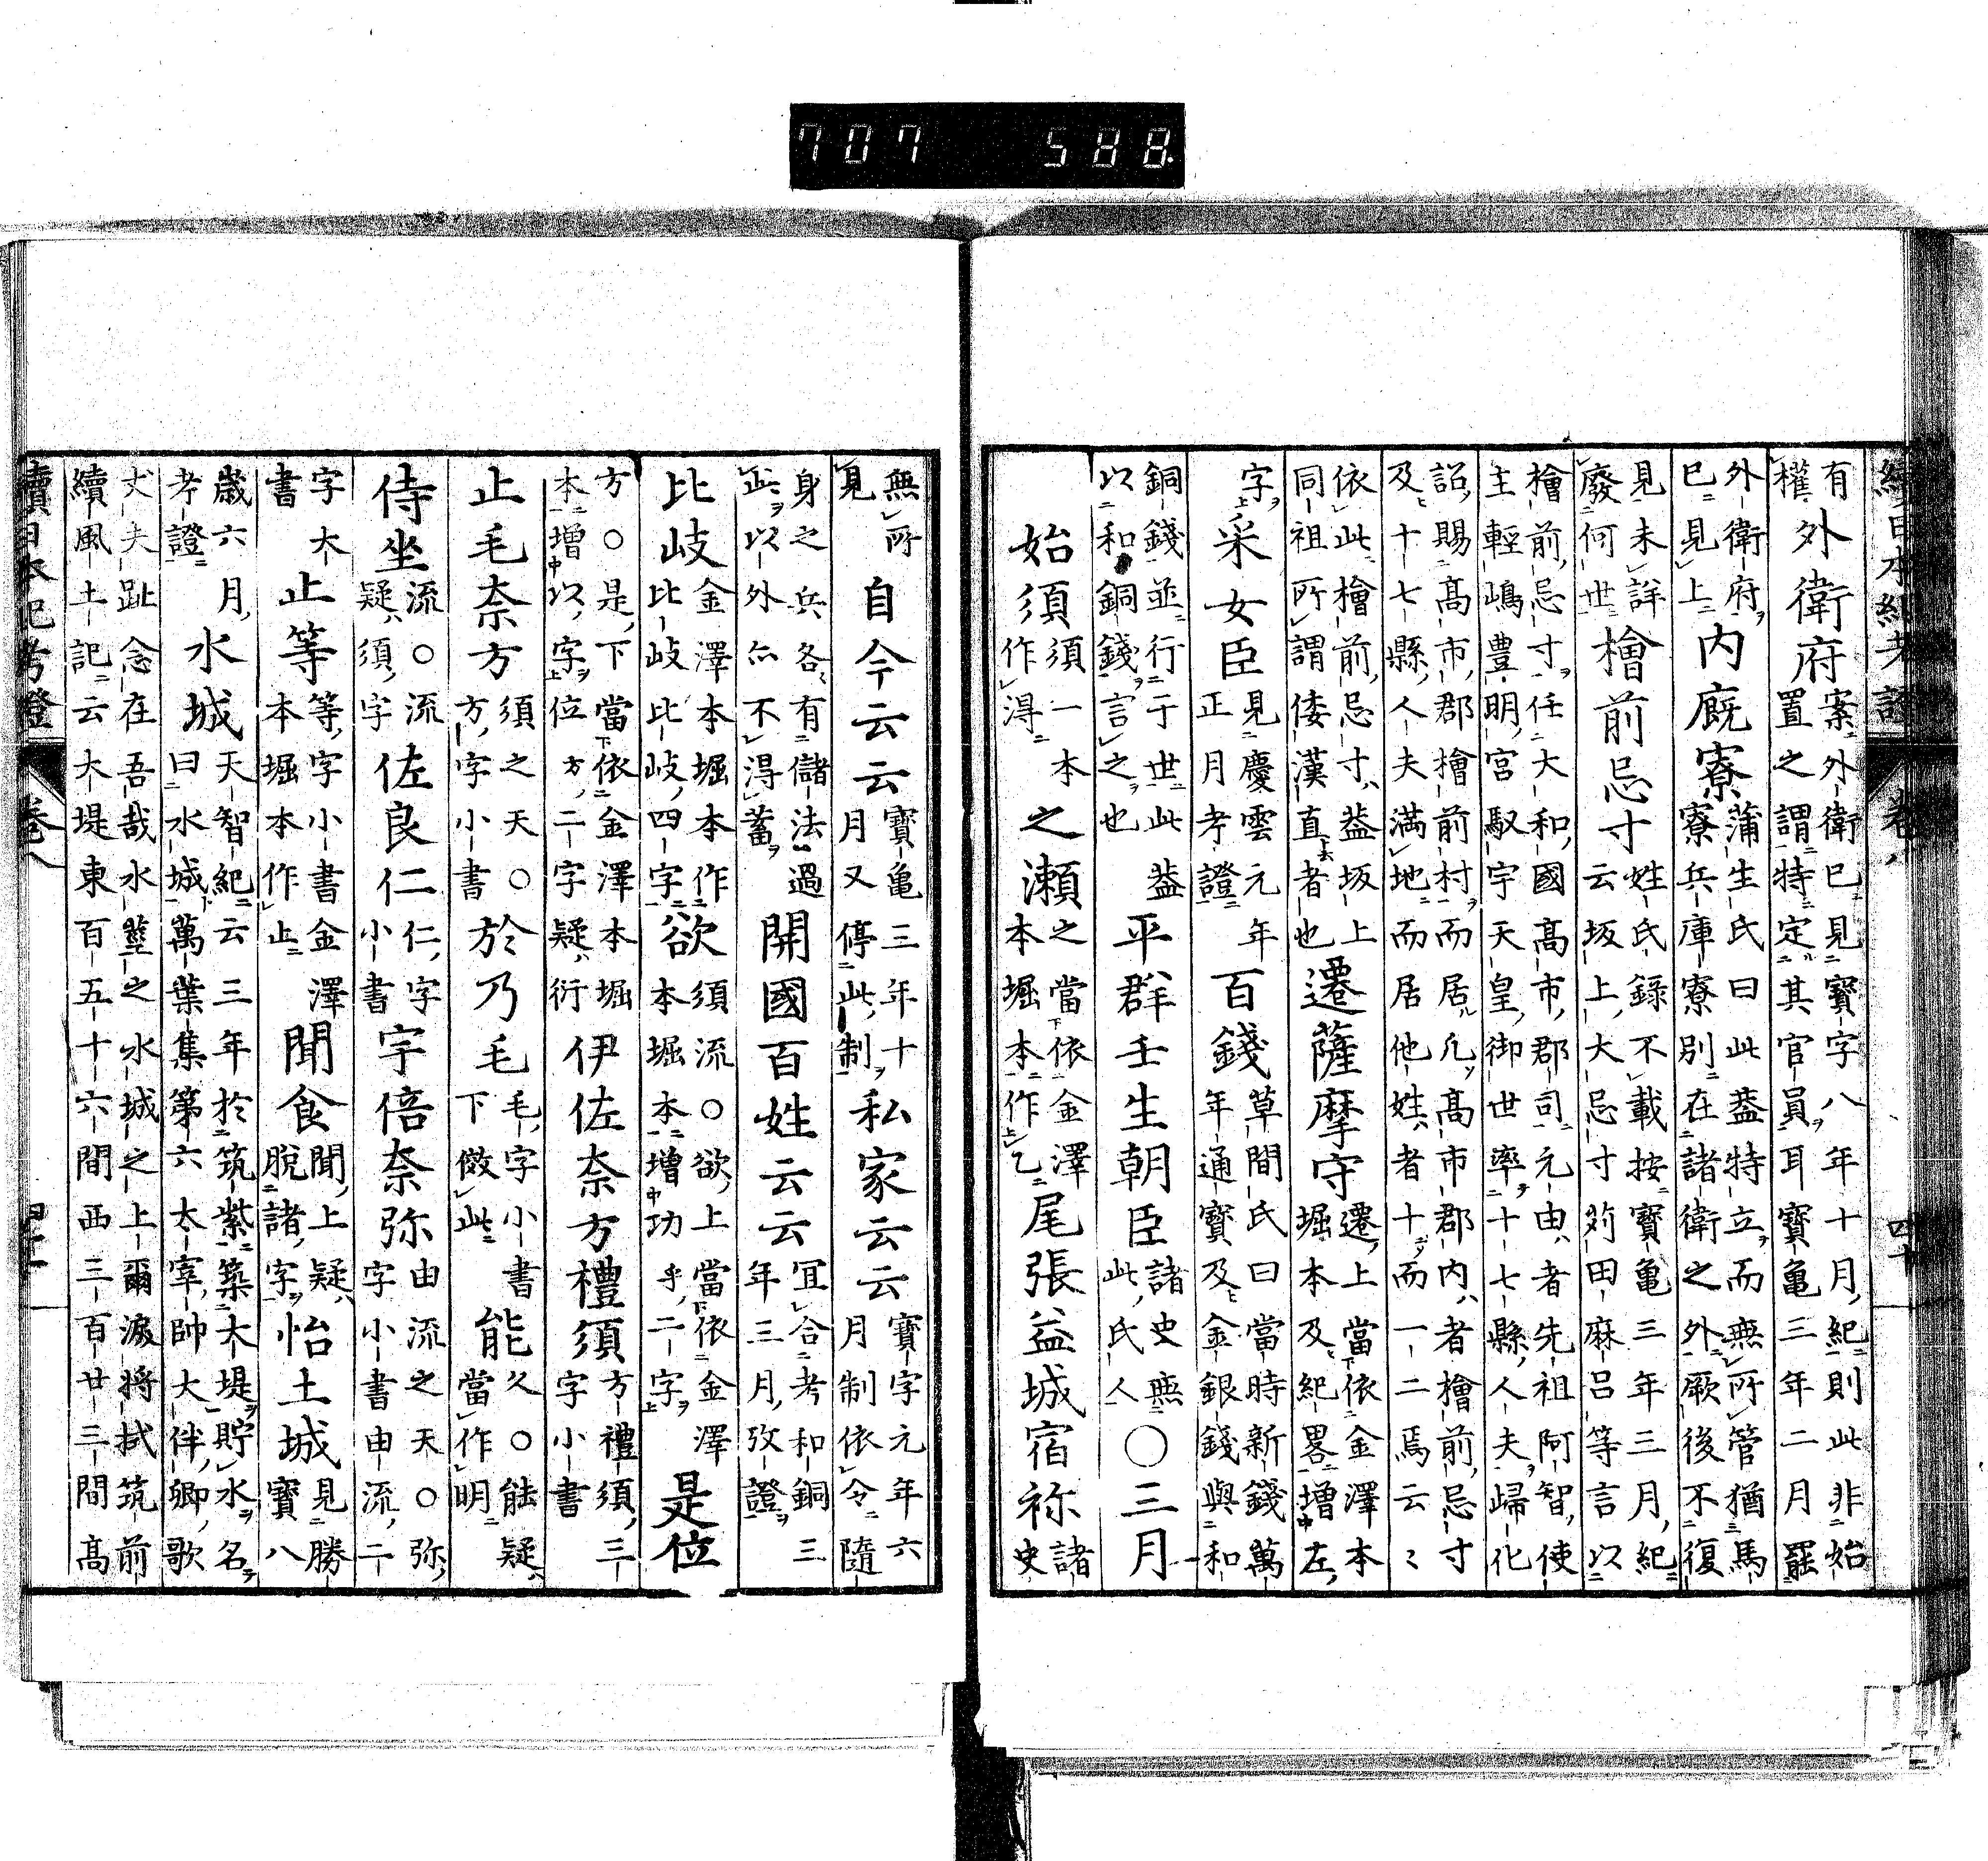 707 588
續日本紀考證 卷八 四十
有外衛府案外衛巳見寶字八年十月紀則此非始
權置之謂特定其官員耳寶亀三年二月罷
外衛府内廐寮蒲生氏曰此葢特立而無所管猶馬
巳見上寮兵庫寮別在諸衛之外厥後不復
見未詳檜前忌寸姓氏錄不載按寶亀三年三月紀
廢何世云坂上大忌寸苅田麻呂等言以
檜前忌寸任大和國髙市郡司元由者先祖阿智使
主輕嶋豊明宮馭宇天皇御世率十七縣人夫歸化
詔賜髙市郡檜前村而居凡髙市郡内者檜前忌寸
及十七縣人夫滿地而居他姓者十而一二焉云〻
依此檜前忌寸葢坂上遷薩摩守遷上當依金澤本
同祖所謂倭漢直者也堀本及紀畧增左
字采女臣見慶雲元年百錢草間氏曰當時新錢萬
正月考證年通寶及金銀錢與和
銅錢並行于世此葢平群壬生朝臣諸史無〇三月
以和銅錢言之也此氏人
始須須一本之瀬之當依金澤尾張益城宿祢諸
作淂本堀本作乙史
無所自今云云寶亀三年十私家云云寶字元年六
見月又停此制月制依令隨
身之兵各有儲法過開國百姓云云宜合考和銅三
此以外亦不淂蓄年三月攷證
比岐金澤本堀本作欲須流〇欲上當依金澤是位
比岐比岐四字本堀本增功乎二字
方〇是下當依金澤本堀伊佐奈方禮須方禮須三
本增以字位方二字疑衍字小書
止毛奈方須之天〇於乃毛毛字小書能久〇能疑
方字小書下傚此當作明
侍坐流〇流佐良仁仁字宇倍奈弥由流之天〇弥
疑須字小書字小書由流二
字大止等等字小書金澤聞食聞上疑怡土城見勝
書本堀本作止脱諸字寶八
歳六月水城天智紀云三年於筑紫築大堤貯水名
考證曰水城萬葉集第六太宰帥大伴卿歌
丈夫跡念在吾哉水莖之水城之上爾淚将拭筑前
續風土記云大堤東百五十六間西三百廿三間髙
續日本紀考證 卷八